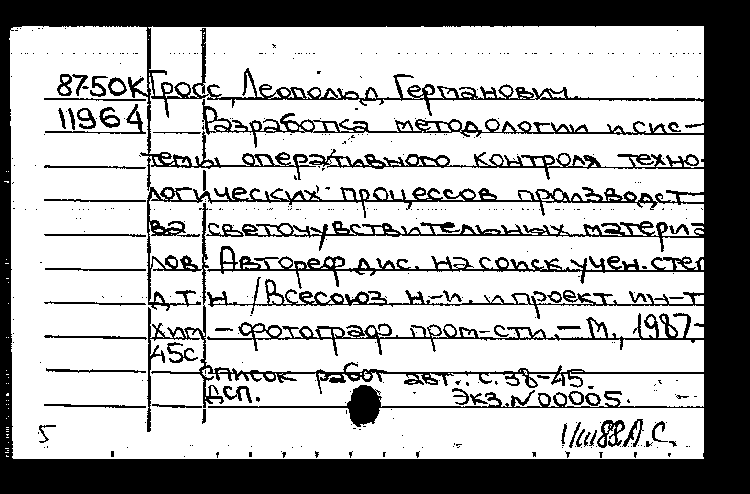 87-50К Гросс, Леопольд Германович.
11964 Разработка методологии и сис-
темы оперативного контроля техно-
логических процессов производст-
ва светочувствительных материа
лов: Автореф. дис. на соиск. учен. степ
д.т.н. /Всесоюз. н.-и. и проект. ин-т
хим.-фотограф. пром-сти.-М., 1987.-
45с.
Список работ авт.: с. 38-45.
ДСП. Экз. N 00005.
5